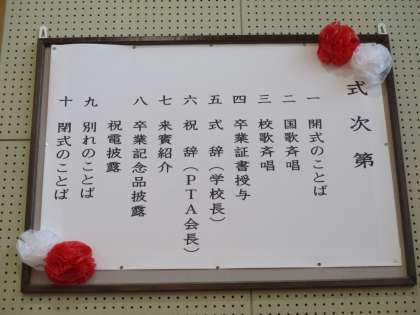 式次第
一 開式のことば
二 国歌斉唱
三 校歌斉唱
四 卒業証書授与
五 式辞（学校長）
六 祝辞（ＰＴＡ会長）
七 来賓紹介
八 卒業記念品披露
祝電披露
九 別れのことば
十 閉式のことば